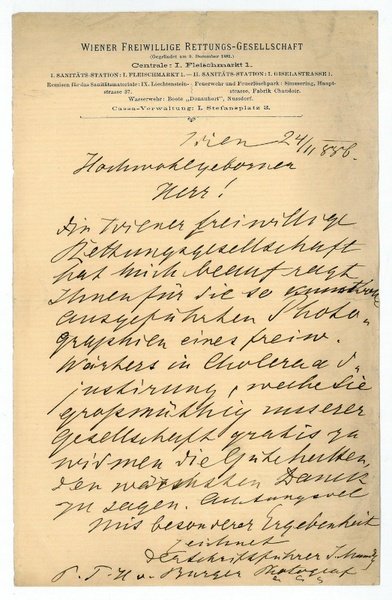 WIENER FREIWILLIGE RETTUNGS-GESELLSCHAFT
(Gegründet am 9. Dezember 1881.)
Centrale: I. Fleischmarkt 1.
I. SANITÄTS-STATION: I. FLEISCHMARKT 1. — II. SANITÄTS-STATION: I. GISELASTRASSE 1.
Remisen für das Sanitätsmateriale: IX. Liechtenstein-
strasse 37.
Feuerwehr und Feuerlöschpark: Simmering, Haupt-
strasse, Fabrik Chaudoir.
Wasserwehr: Boote „Donauhort", Nussdorf.
Cassa-Verwaltung: I. Stefansplatz 3.
Wien 24/II 886.
Hochwohlgeborner
Herr!
Die Wiener freiwillige
Rettungsgesellschaft
hat mich beauftragt
Ihnen für die so
ausgeführten Photo-
graphien eines freiw.
Wärters in Cholera ad-
justirung, welche Sie
großmüthig unserer
Gesellschaft gratis zu
widmen die Güte hatten,
den wärmsten Danck
zu sagen. Achtungsvol
Mit besonderer Ergebenheit
zeichnet
der Schriftführer J. Mundy
P. T. H v. Burger Photograf